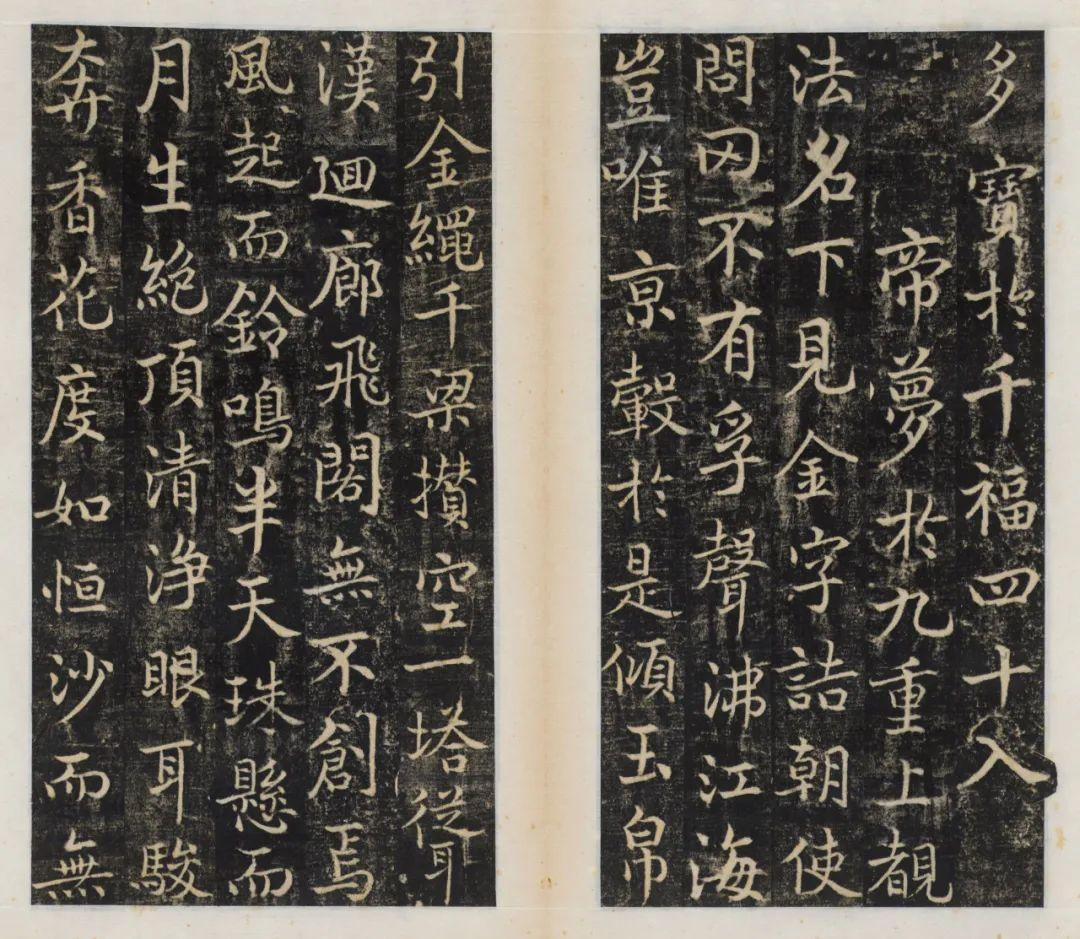 多寶於千福四十入
帝夢於九重上覩
法名下見金字詰朝使
問罔不有孚聲沸江海
豈唯亰轂於是傾玉帛
引金繩千梁攢空一塔聳
漢廻廊飛閣無不創焉
風起而鈴鳴半天珠懸而
月生絶頂清浄眼耳駿
奔香花度如恒沙而無